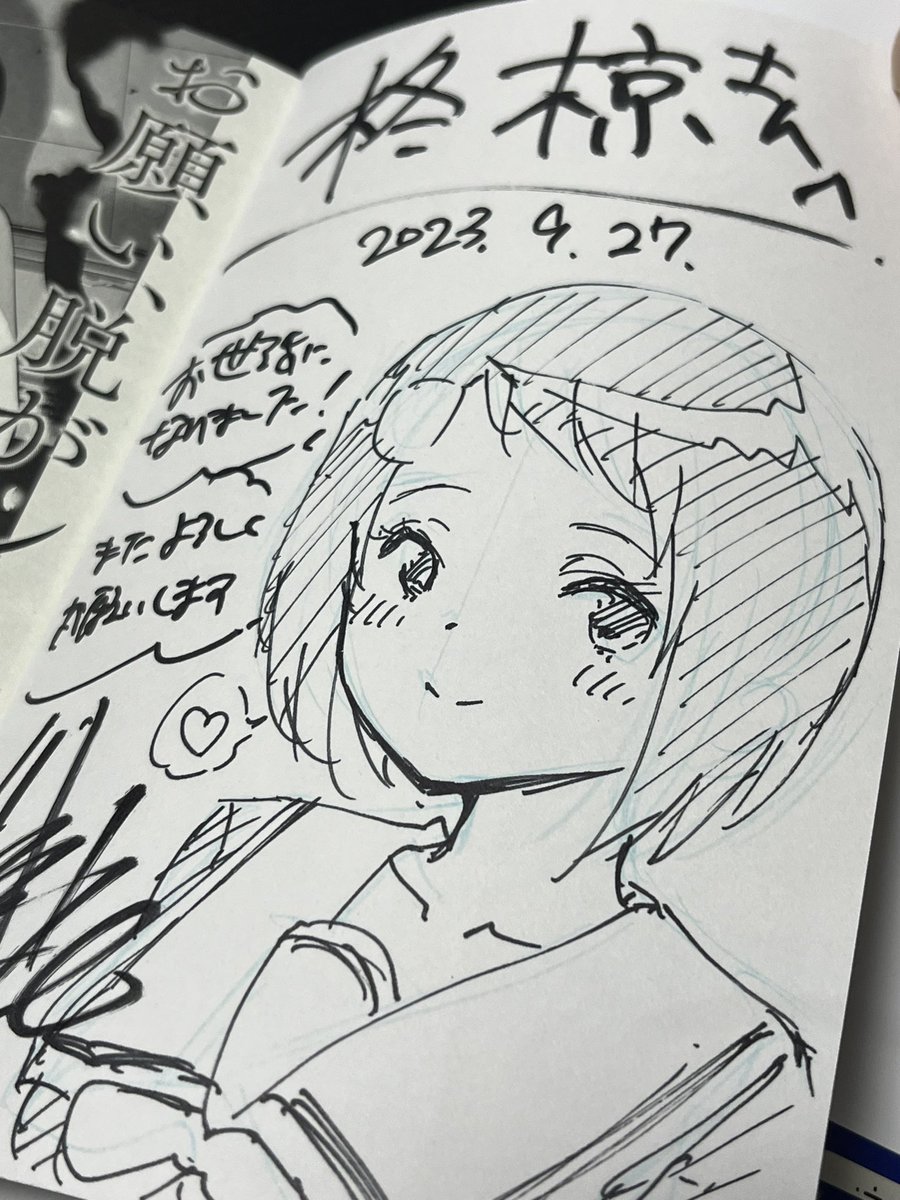 柊 椋さんへ
2023. 9. 27.
お世話に
なりました!
またよろしく
お願いします
お願い、
脱が